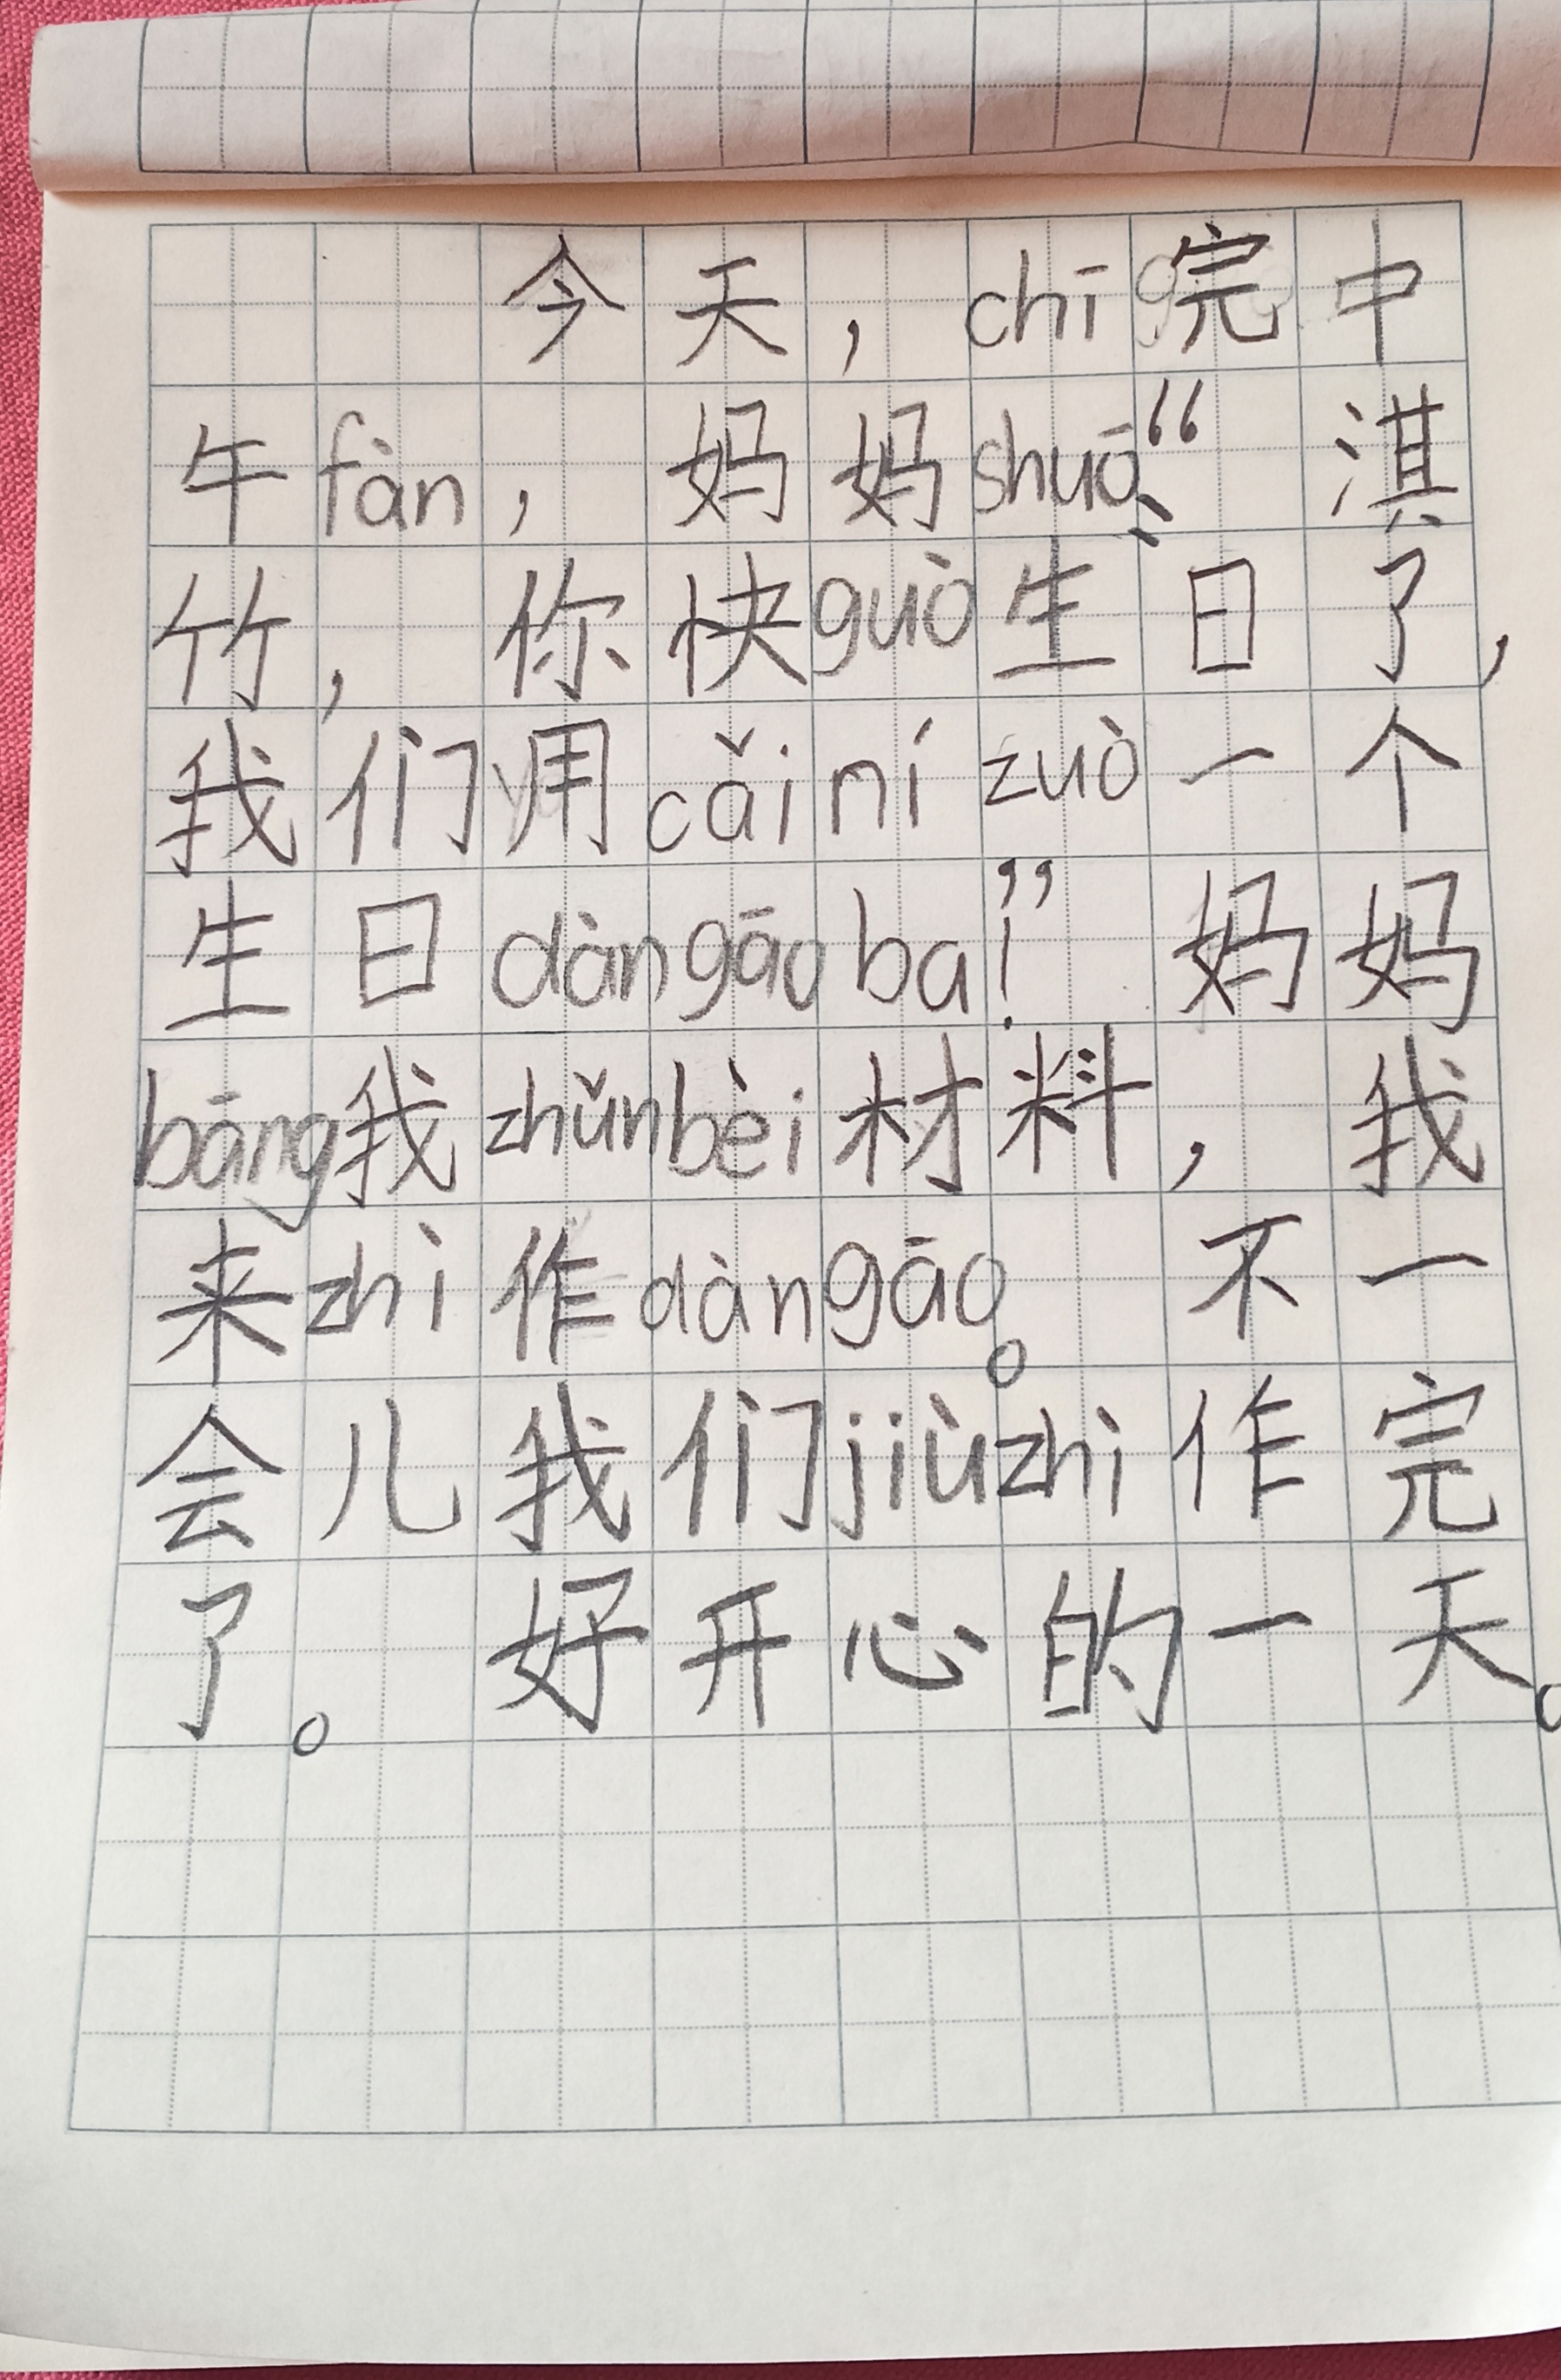 今天，chī完中
午fàn，妈妈shuō：“淇
竹，你快guò生日了，
我们用cǎiní zuò一个
生日dàngāo ba！”妈妈
bāng我zhǔnbèi材料，我
来zhì作dàngāo。不一
会儿我们jiùzhì作完
了。好开心的一天。